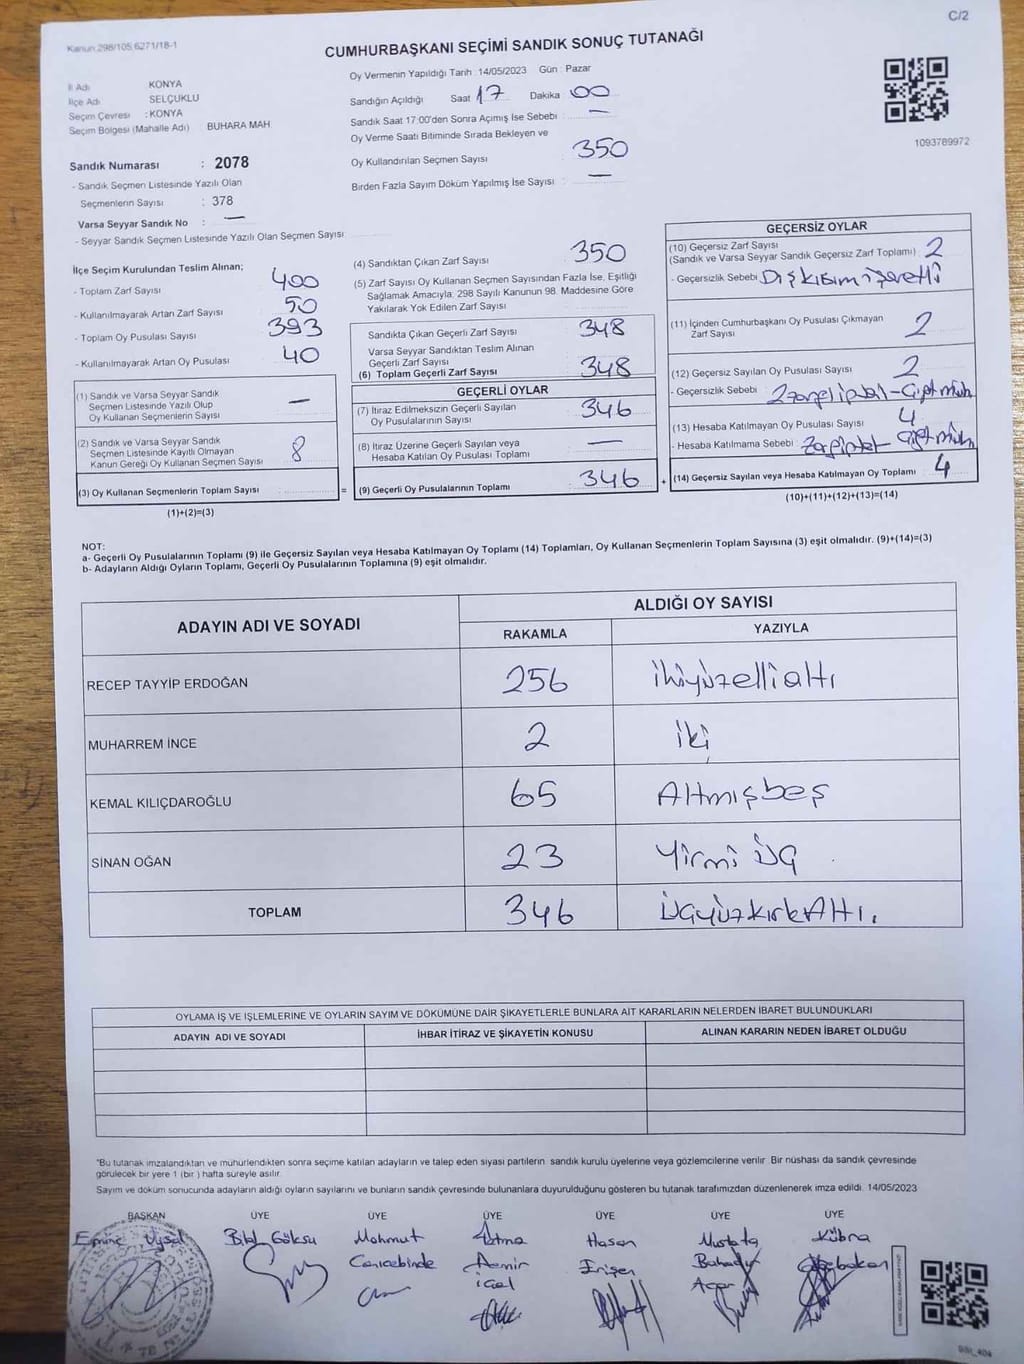 C/2
Kanun 298/105,6271/18-1
CUMHURBAŞKANI SEÇİMİ SANDIK SONUÇ TUTANAĞI
İl Adı KONYA
İlçe Adı SELÇUKLU
Seçim Çevresi : KONYA
Seçim Bölgesi (Mahalle Adı) BUHARA MAH
Sandık Numarası : 2078
- Sandık Seçmen Listesinde Yazılı Olan
Seçmenlerin Sayısı : 378
Varsa Seyyar Sandık No : —
- Seyyar Sandık Seçmen Listesinde Yazılı Olan Seçmen Sayısı
Oy Vermenin Yapıldığı Tarih : 14/05/2023 Gün : Pazar
Sandığın Açıldığı Saat 17 Dakika 00
Sandık Saat 17:00'den Sonra Açımış İse Sebebi : —
Oy Verme Saati Bitiminde Sırada Bekleyen ve
Oy Kullandırılan Seçmen Sayısı 350
Birden Fazla Sayım Döküm Yapılmış İse Sayısı : —
1093789972
İlçe Seçim Kurulundan Teslim Alınan;
- Toplam Zarf Sayısı 400
- Kullanılmayarak Artan Zarf Sayısı 50
- Toplam Oy Pusulası Sayısı 393
- Kullanılmayarak Artan Oy Pusulası 40
(1) Sandık ve Varsa Seyyar Sandık
Seçmen Listesinde Yazılı Olup
Oy Kullanan Seçmenlerin Sayısı —
(2) Sandık ve Varsa Seyyar Sandık
Seçmen Listesinde Kayıtlı Olmayan
Kanun Gereği Oy Kullanan Seçmen Sayısı 8
(3) Oy Kullanan Seçmenlerin Toplam Sayısı
=
(1)+(2)=(3)
(4) Sandıktan Çıkan Zarf Sayısı 350
(5) Zarf Sayısı Oy Kullanan Seçmen Sayısından Fazla İse, Eşitliği
Sağlamak Amacıyla, 298 Sayılı Kanunun 98. Maddesine Göre
Yakılarak Yok Edilen Zarf Sayısı
Sandıkta Çıkan Geçerli Zarf Sayısı 348
Varsa Seyyar Sandıktan Teslim Alınan
Geçerli Zarf Sayısı
(6) Toplam Geçerli Zarf Sayısı 348
GEÇERLİ OYLAR
(7) İtiraz Edilmeksizin Geçerli Sayılan
Oy Pusulalarının Sayısı 346
(8) İtiraz Üzerine Geçerli Sayılan veya
Hesaba Katılan Oy Pusulası Toplamı —
(9) Geçerli Oy Pusulalarının Toplamı 346
+
GEÇERSİZ OYLAR
(10) Geçersiz Zarf Sayısı
(Sandık ve Varsa Seyyar Sandık Geçersiz Zarf Toplamı) 2
- Geçersizlik Sebebi Dış kısım işaretli
(11) İçinden Cumhurbaşkanı Oy Pusulası Çıkmayan
Zarf Sayısı 2
(12) Geçersiz Sayılan Oy Pusulası Sayısı 2
- Geçersizlik Sebebi
(13) Hesaba Katılmayan Oy Pusulası Sayısı 4
- Hesaba Katılmama Sebebi
(14) Geçersiz Sayılan veya Hesaba Katılmayan Oy Toplamı 4
(10)+(11)+(12)+(13)=(14)
NOT:
a- Geçerli Oy Pusulalarının Toplamı (9) ile Geçersiz Sayılan veya Hesaba Katılmayan Oy Toplamı (14) Toplamları, Oy Kullanan Seçmenlerin Toplam Sayısına (3) eşit olmalıdır. (9)+(14)=(3)
b- Adayların Aldığı Oyların Toplamı, Geçerli Oy Pusulalarının Toplamına (9) eşit olmalıdır.
ADAYIN ADI VE SOYADI ALDIĞI OY SAYISI
RAKAMLA YAZIYLA
RECEP TAYYİP ERDOĞAN 256 ikiyüzellialtı
MUHARREM İNCE 2 iki
KEMAL KILIÇDAROĞLU 65 Altmışbeş
SİNAN OĞAN 23 Yirmi üç
TOPLAM 346 üçyüzkırkAltı.
OYLAMA İŞ VE İŞLEMLERİNE VE OYLARIN SAYIM VE DÖKÜMÜNE DAİR ŞİKAYETLERLE BUNLARA AİT KARARLARIN NELERDEN İBARET BULUNDUKLARI
ADAYIN ADI VE SOYADI İHBAR İTİRAZ VE ŞİKAYETİN KONUSU ALINAN KARARIN NEDEN İBARET OLDUĞU
"Bu tutanak imzalandıktan ve mühürlendikten sonra seçime katılan adayların ve talep eden siyasi partilerin sandık kurulu üyelerine veya gözlemcilerine verilir Bir nüshası da sandık çevresinde
görülecek bir yere 1 (bir ) hafta süreyle asılır.
Sayım ve döküm sonucunda adayların aldığı oyların sayılarını ve bunların sandık çevresinde bulunanlara duyurulduğunu gösteren bu tutanak tarafımızdan düzenlenerek imza edildi. 14/05/2023
BAŞKAN ÜYE ÜYE ÜYE ÜYE ÜYE ÜYE
Emine Uysal Bilal Göksu Mahmut Fatma Hasan Mustafa Kübra
Demir Erişen Bahadır
Acar